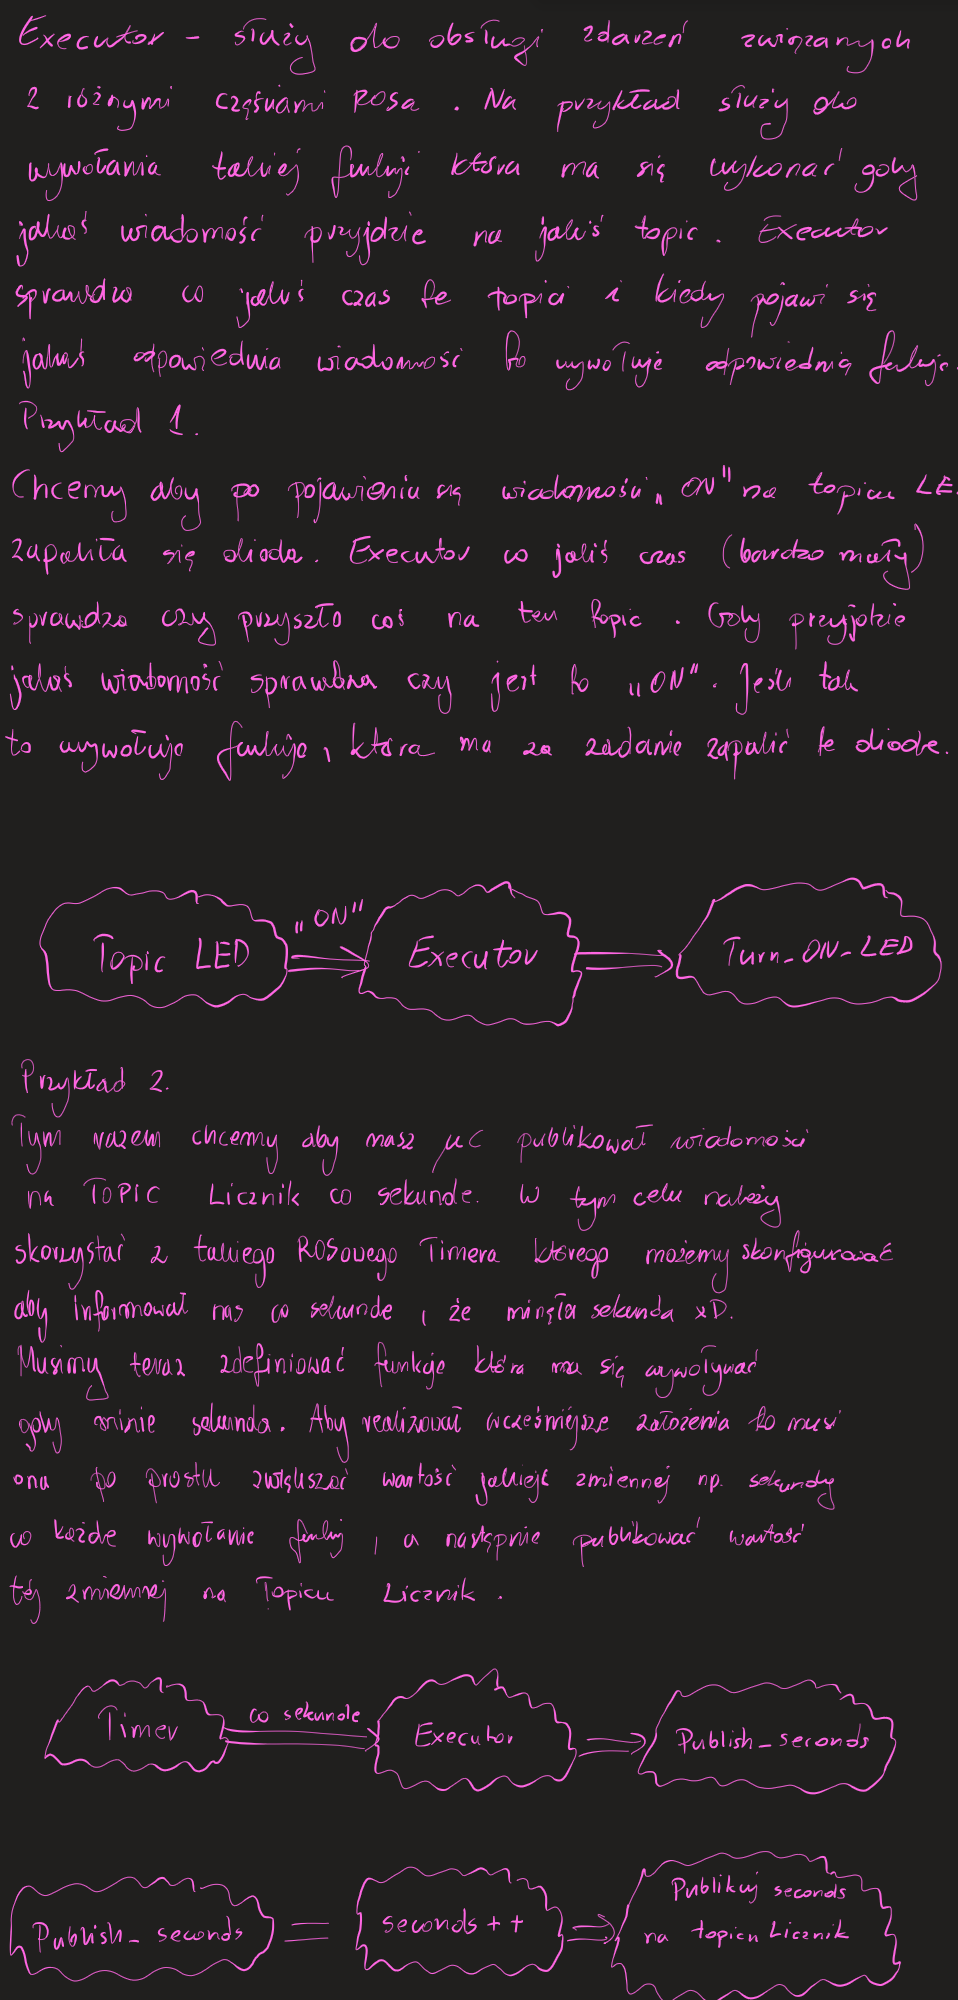 Executor - służy do obsługi zdarzeń związanych
z różnymi częściami ROSa. Na przykład służy do
wywołania takiej funkcji która ma się wykonać gdy
jakaś wiadomość przyjdzie na jakiś topic. Executor
sprawdza co jakiś czas te topici i kiedy pojawi się
jakaś odpowiednia wiadomność to wywołuje odpowiednią funkcje.
Przykład 1.
Chcemy aby po pojawieniu się wiadomości „ON" na topicu LE
zapaliła się dioda. Executor co jakiś czas (bardzo mały)
sprawdza czy przyszło coś na ten topic. Gdy przyjdzie
jakaś wiadomość sprawdza czy jest to „ON". Jeśli tak
to wywołuje funkcje, która ma za zadanie zapalić te diode.
Topic LED
„ON"
Executor
Turn_ON_LED
Przykład 2.
Tym razem chcemy aby nasz µC publikował wiadomości
na TOPIC Licznik co sekunde. W tym celu należy
skorzystać z takiego ROSowego Timera którego możemy skonfigurować
aby informował nas co sekunde, że minęła sekunda xD.
Musimy teraz zdefiniować funkcje która ma się wywoływać
gdy minie sekunda. Aby realizował wcześniejsze założenia to musi
ona po prostu zwiększać wartość jakiejś zmiennej np. sekundy
co każde wywołanie funkcj, a następnie publikować wartość
tej zmiennej na Topicu Licznik.
Timer
co sekunde
Executor
Publish_seconds
Publish_seconds
=
seconds++
Publikuj seconds
na topicu Licznik